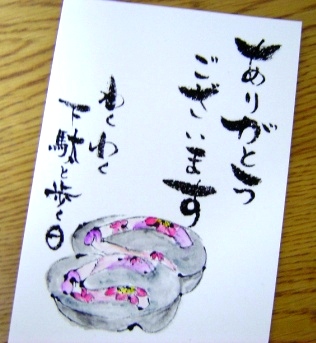 ありがとう
ございます
わくわく
下駄と歩く